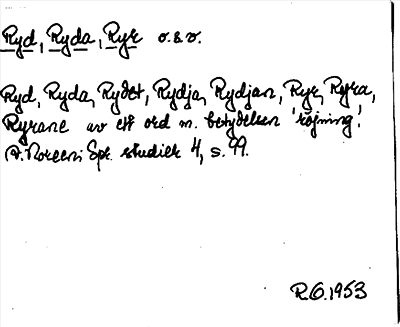 Ryd, Ryda, Ryr o.s.v.
Ryd, Ryda, Rydet, Rydja, Rydjan, Ryr, Ryra,
Ryrane av ett ord m. betydelsen 'röjning'.
A. Noreen: Spr. studier 4, s. 99.
R.O. 1953